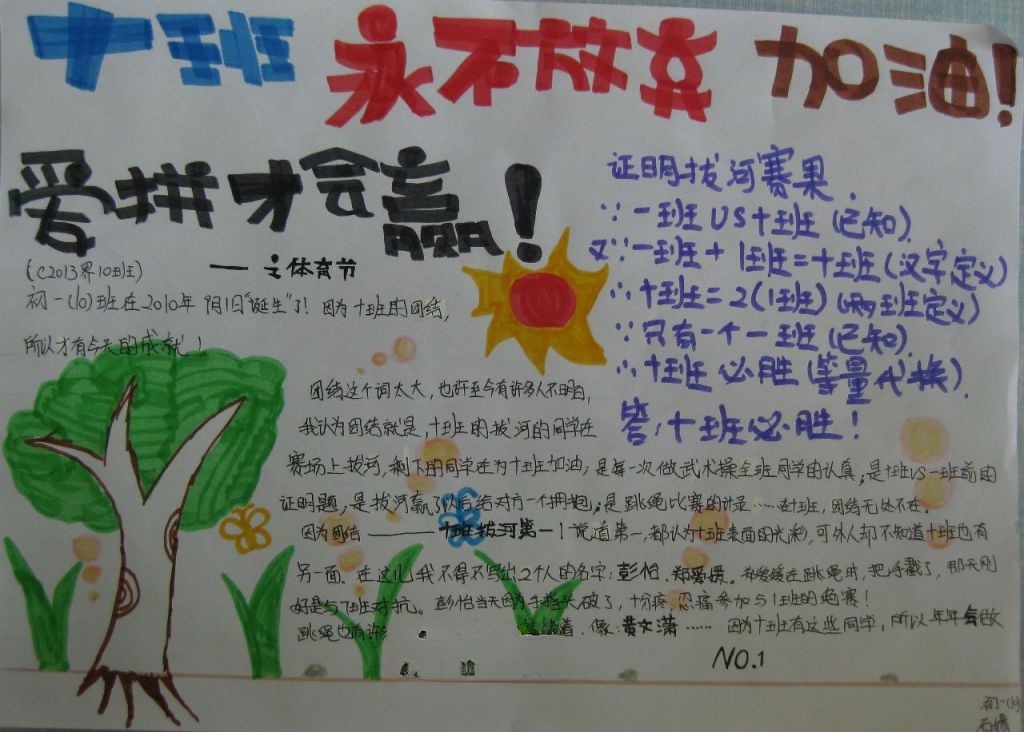 十班 永不放弃 加油!
爱拼才会赢!
——之体育节
(C2013界10班)
初一(10)班在2010年9月1日"诞生"了! 因为十班的团结,
所以才有今天的成就!
证明拔河赛果.
∵一班VS十班(已知)
又∵一班+1班=十班(汉字定义)
∴十班=2(1班)(两班定义)
∵只有一个一班(已知)
∴十班必胜(等量代换)
答:十班必胜!
团结这个词太大,也许至今有许多人不明白,
我认为团结就是十班的拔河的同学在
赛场上拔河,剩下的同学在为十班加油;是每一次做武术操全班同学的认真;是十班VS一班前的
证明题,是拔河赢了以后给对方一个拥抱;是跳绳比赛的计录……在十班,团结无处不在。
因为团结————十班拔河第一!说道第一,都认为十班表面的光彩,可外人却不知道十班也有
另一面.在这儿我不得不写出2个人的名字:彭怡.郑爱媛。郑爱媛在跳绳时,把手戳了,那天刚
好是与7班对抗。彭怡当天因为手指头破了,十分疼,忍痛参加与1班的绳赛!
跳绳也有许 着.像:黄文潇……因为十班有这些同学,所以年年会做
NO.1
初一(10)